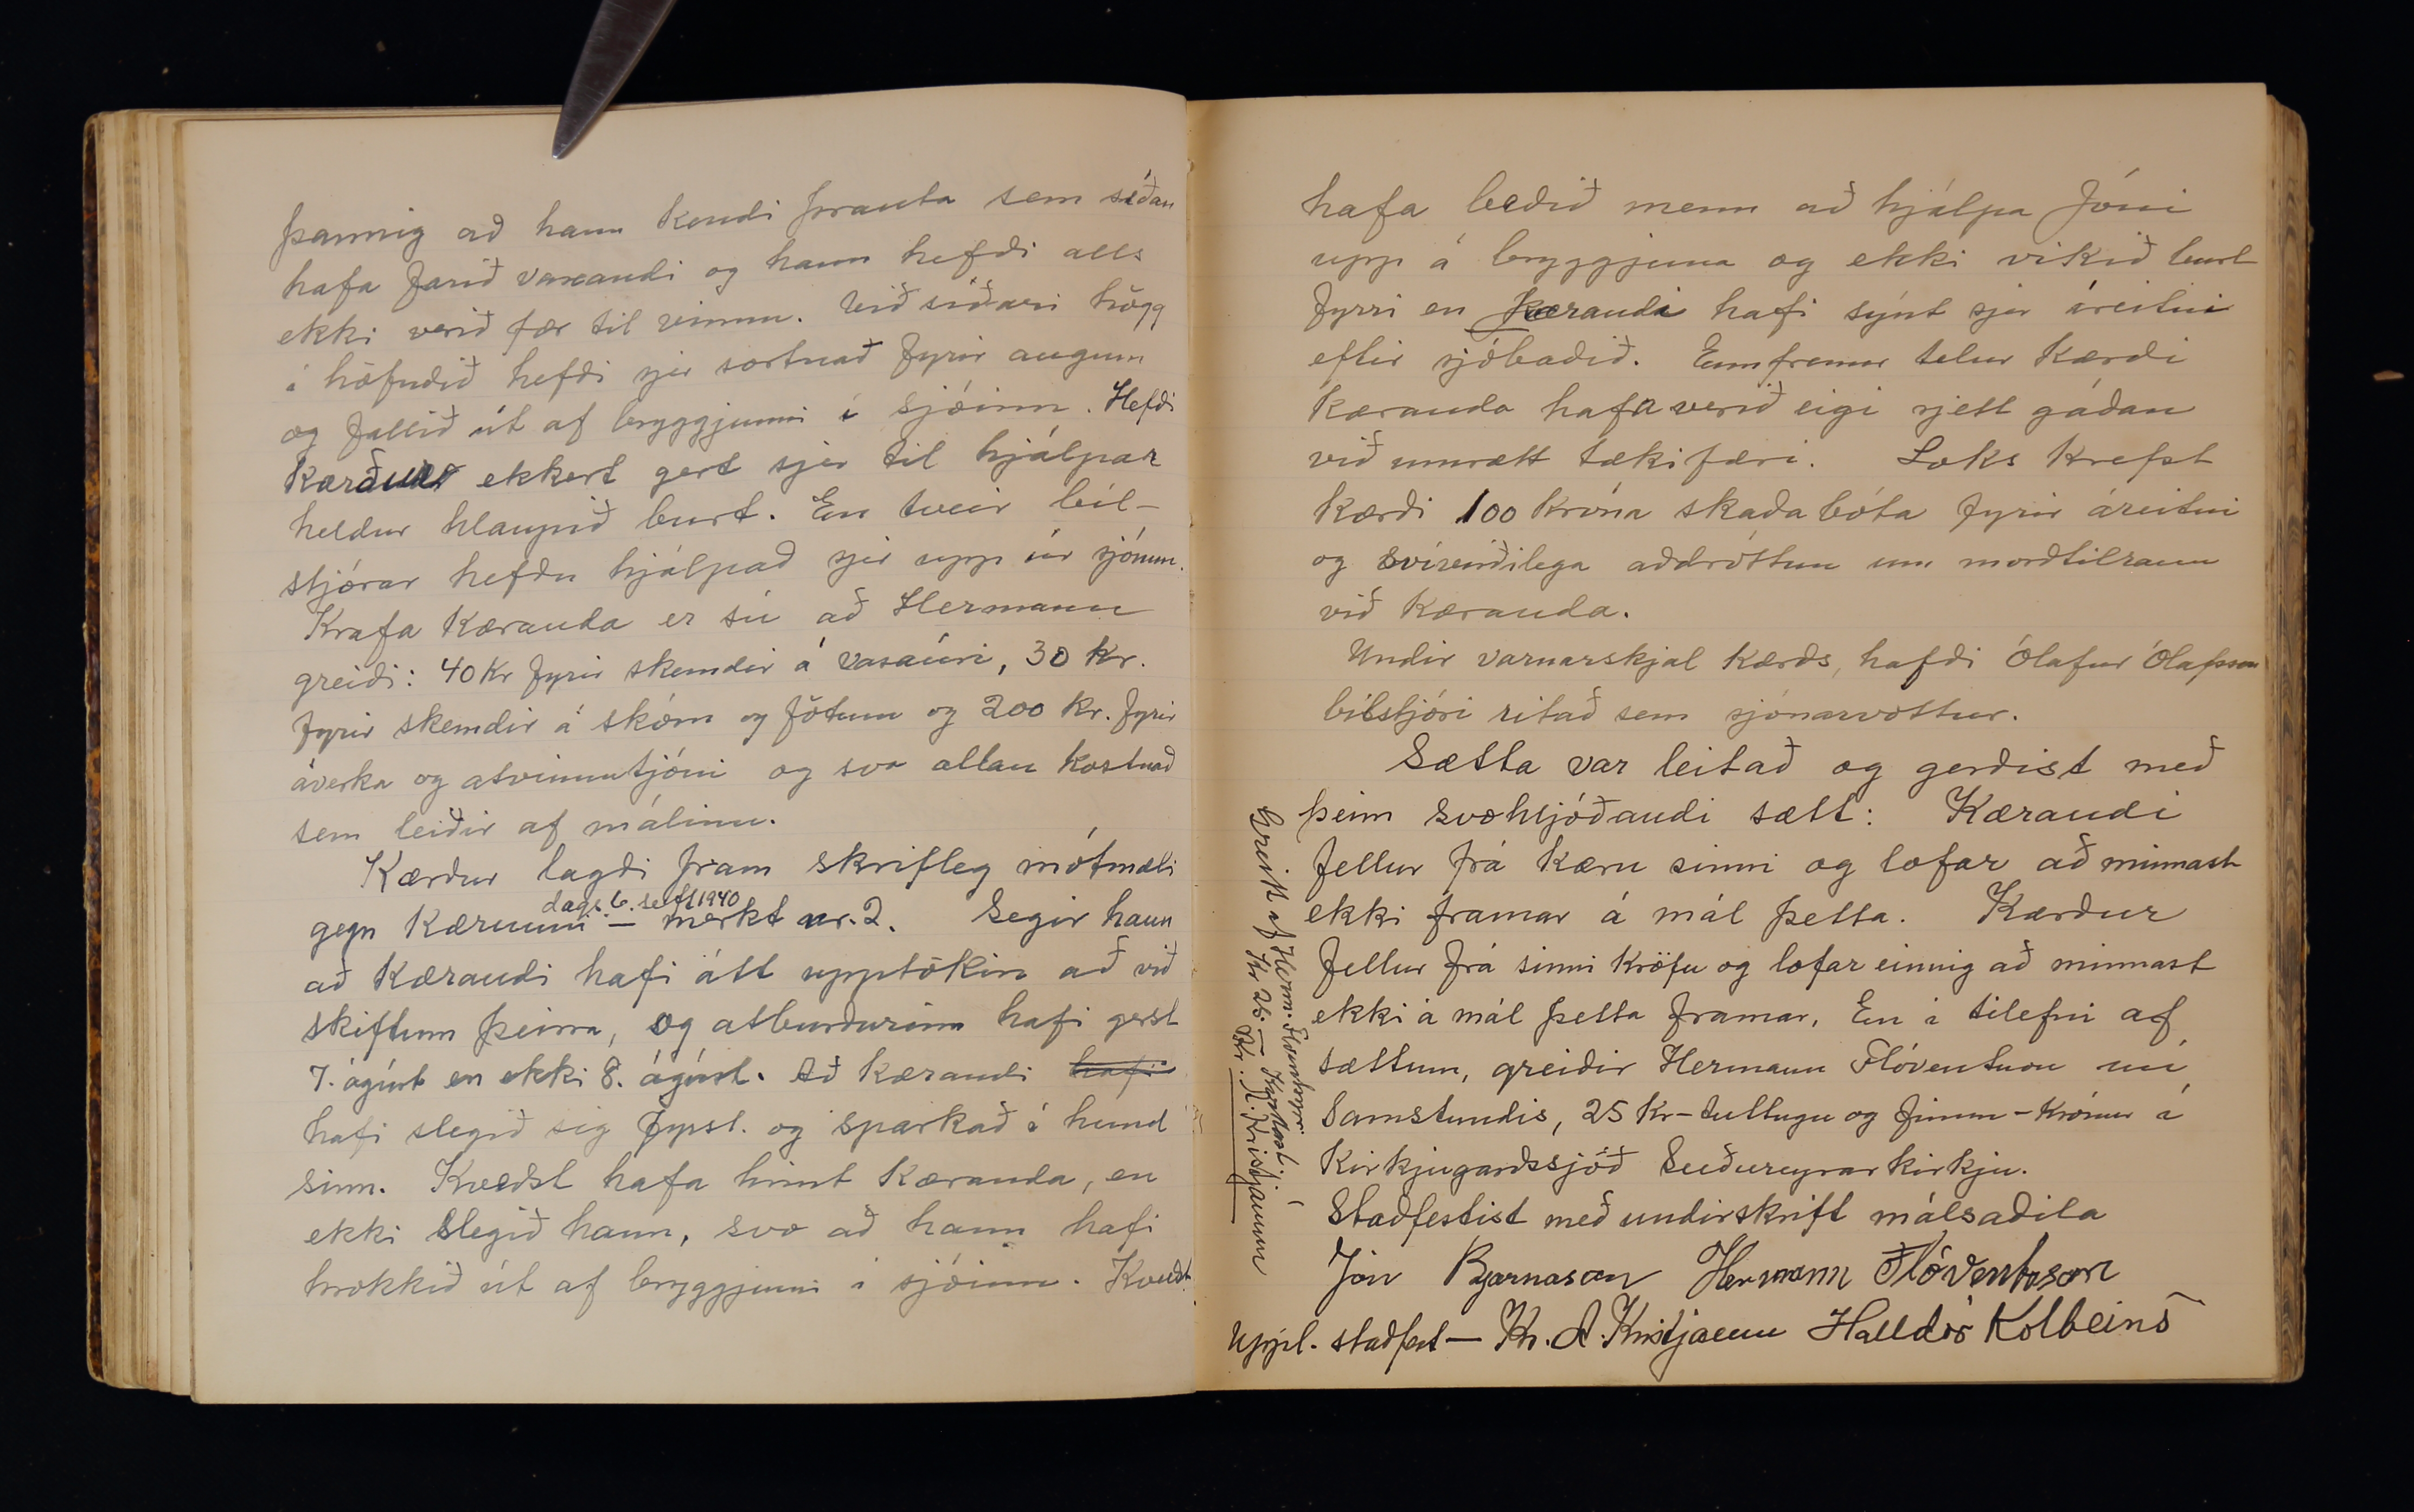 þannig að hann kendi þrauta sem síðan
hafa farið vaxandi og hann hefði alls
ekki verið fær til vinnu. Við síðari högg
í höfuðið hefði sjer sortnað fyrir augum
og fallið út af bryggjunni í sjóinn. Hefði
Kærður ekkert gert sjer til hjálpar
heldur hlaupið burt. En tveir bíl-
stjórar hefðu hjálpað sjer upp úr sjónum.
Krafa Kæranda er sú að Hermann
greiði: 40 Kr fyrir skemdir á vasaúri, 30 kr.
fyrir skemdir á skóm og fötum og 200 kr. fyrir
áverka og atvinnutjóni og svo allan kostnað
sem leiðir af málinu.
Kærður lagði fram skrifleg mótmæli
dags. 6. sept 1940
gegn Kærunni — merkt nr. 2. Segir hann
að Kærandi hafi átt upptökin að við
skiftum þeirra, og atburðurinn hafi gerst
7. ágúst en ekki 8. ágúst. Að kærandi hafi
hafi slegið sig fyrst. og sparkað í hund
sinn. Kveðst hafa hrint Kæranda, en
ekki slegið hann, svo að hann hafi
hrokkið út af bryggjunni í sjóinn. Kveðst
hafa beðið menn að hjálpa Jóni
upp á bryggjuna og ekki vikið burt
fyrri en Kærandi hafi sýnt sjer áreitni
eftir sjóbaðið. Ennfremur telur Kærði
Kæranda hafa verið eigi sjett gáðan
við umrætt tækifæri. Loks krefst
Kærði 100 króna skaðabóta fyrir áreitni
og svívirðilega aðdróttun um morðtilraun
við Kæranda.
Undir varnarskjal Kærðs, hafði Ólafur Ólafsson
bílstjóri ritað sem sjónarvottur.
Sætta var leitað og gerðist með
þeim svohljóðandi sætt: Kærandi
fellur frá kæru sinni og lofar að minnast
ekki framar á mál þetta. Kærður
fellur frá sinni kröfu og lofar einnig að minnast
ekki á mál þetta framar. En í tilefni af
sættum, greiðir Hermann Flóventsson nú,
samstundis, 25 Kr - tuttugu og fimm - krónur í
Kirkjugarðssjóð Suðureyrarkirkju.
Staðfestist með undirskrift málsaðila
Jón Bjarnason Hermann Flóventsson
Uppl. staðfest — Kr. A. Kristjánsson Halldór Kolbeins
Greitt af Herm. Flóventssyni
Kr 25.—
Kr. A. Kristjánsson